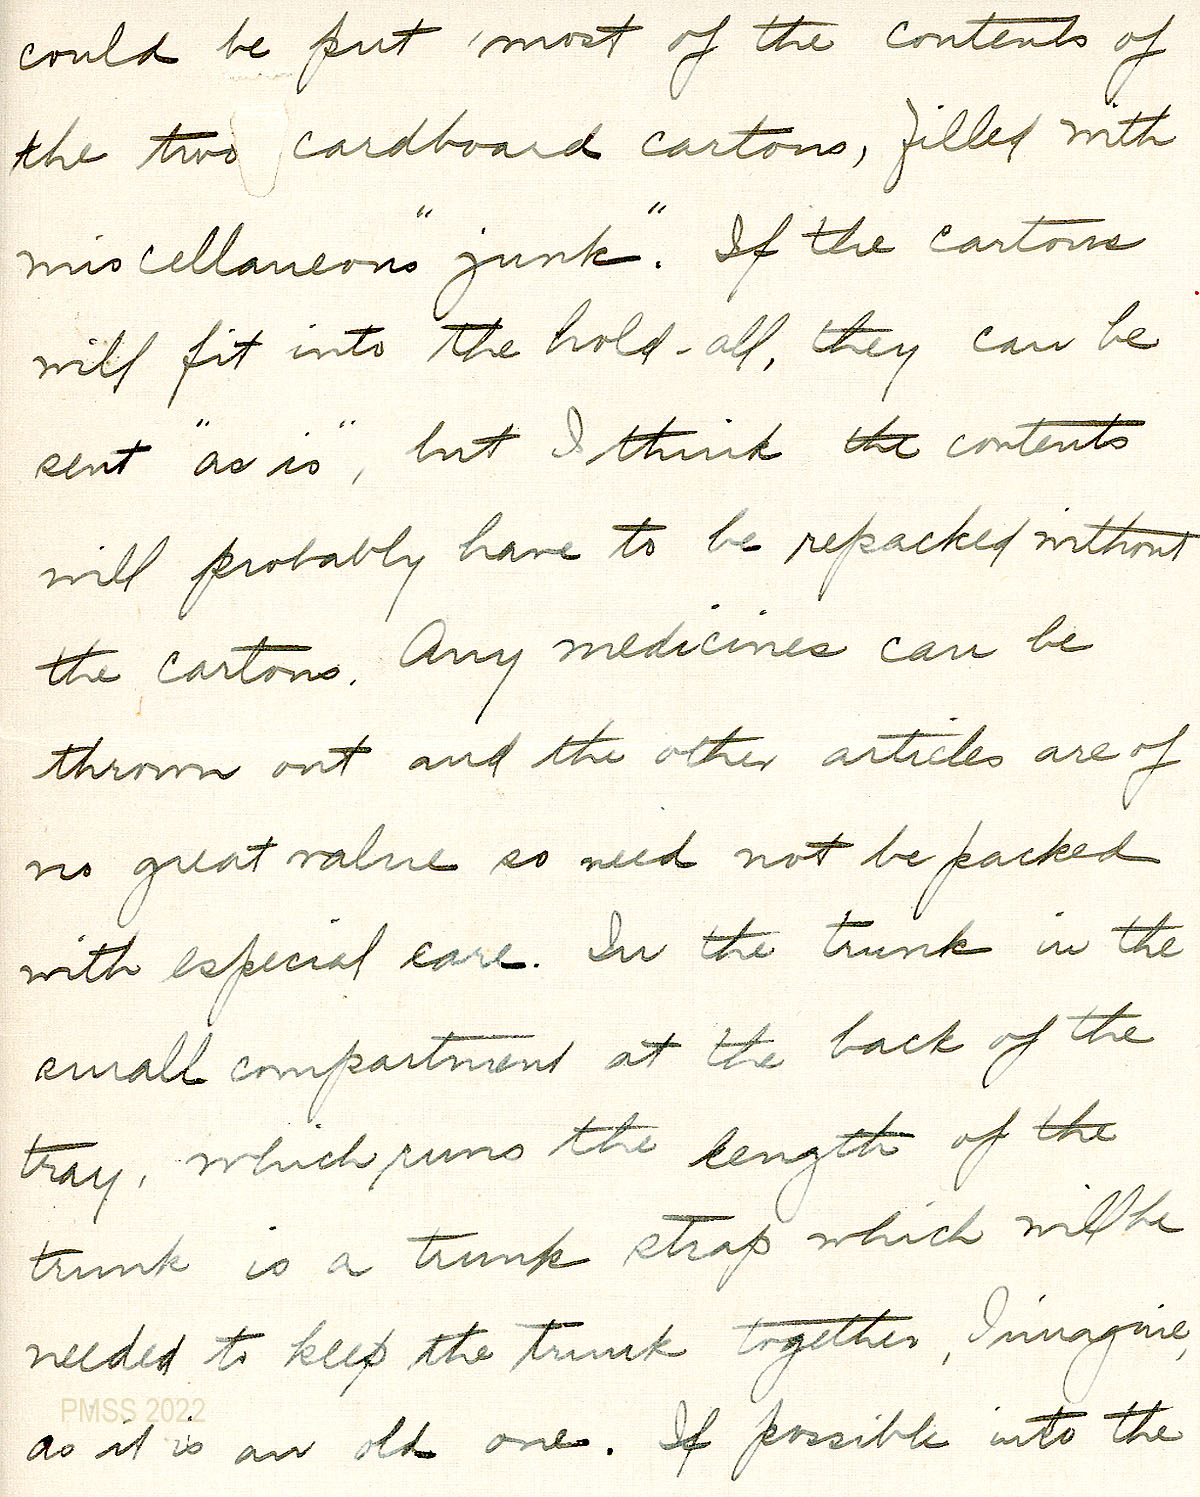 could be put most of the contents of
the two cardboard cartons, filled with
miscellaneous "junk". If the cartons
will fit into the hold-all, they can be
sent "as is", but I think the contents
will probably have to be repacked without
the cartons. Any medicines can be
thrown out and the other articles are of
no great value so need not be packed
with especial care. In the trunk in the
small compartment at the back of the
tray, which runs the length of the
trunk is a trunk strap which will be
needed to keep the trunk together, I imagine,
PMSS 2022
as it is an old one. If possible into the